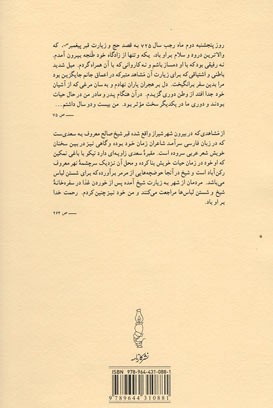 روز پنجشنبه دوم ماه رجب سال ۷۲۵ به قصد حج و زیارت قبر پیغمبر که
والاترین درود و سلام بر او باد، یکه و تنها از زادگاه خود طنجه بیرون آمدم.
نه رفیقی بود که با او دمساز باشم و نه کاروانی که با آن همراه گردم. میل شدید
باطنی و اشتیاقی که برای زیارت آن مشاهد متبرکه در اعماق جانم جایگزین بود
مرا بدین سفر برانگیخت. دل بر هجران یاران نهادم و به سان مرغی که از آشیان
خود جدا افتد از وطن دوری گزیدم. در آن هنگام پدر و مادر من در حال حیات
بودند و دوری ما در یکدیگر سخت مؤثر بود. من بیست و دو سال داشتم...
ص ۷۵
از مشاهدی که در بیرون شهر شیراز واقع شده قبر شیخ صالح معروف به سعدی‌ست
که در زبان فارسی سرآمد شاعران زمان خود بوده و گاهی نیز در بین سخنان
خویش شعر عربی سروده است. مقبرهٔ سعدی زاویه‌ای دارد نیکو با باغی نمکین
که او خود در زمان حیات خویش بنا کرده و محل آن نزدیک سرچشمهٔ نهر معروف
رکن‌آباد است و شیخ در آنجا حوضچه‌هایی از مرمر برآورده که برای شستن لباس
می‌باشد. مردمان از شهر به زیارت شیخ آمده پس از خوردن غذا در سفره‌خانهٔ
شیخ و شستن لباس‌ها مراجعت می‌کنند و من خود نیز چنین کردم. رحمت خدا
بر او باد.
ص ۲۶۴
نشر کارنامه
ISBN: 978-964-431-088-1
9 789644 310881